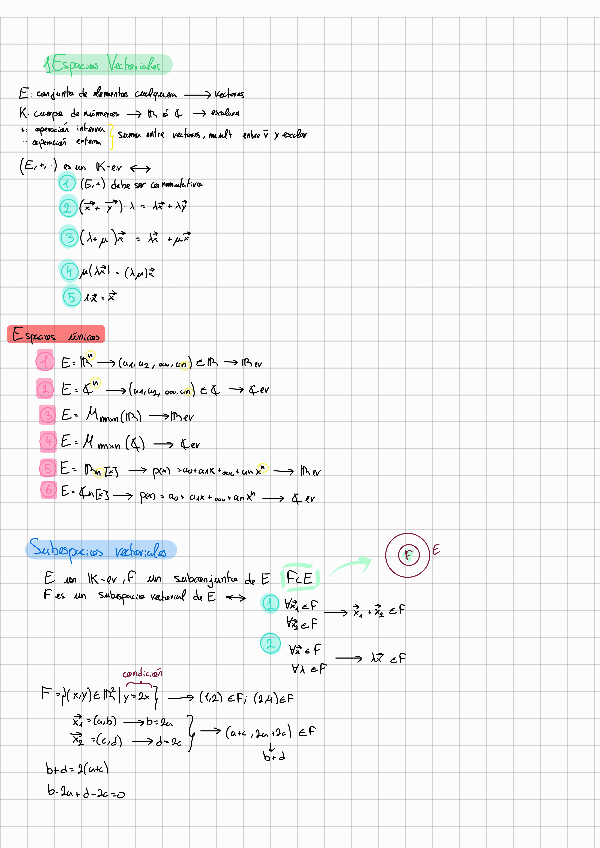 1 Espacios Vectoriales
E: conjunto de elementos cualquiera → vectores
K: cuerpo de números → ℝ ó ℂ → escalares
+: operación interna
·: operación externa } suma entre vectores, mult entre v̄ y escalar
(E, +, ·) es un K-ev ↔
1 (E, +) debe ser conmutativa
2 (x⃗ + y⃗) · λ = λx⃗ + λy⃗
3 (λ + μ)x⃗ = λx⃗ + μx⃗
4 μ(λx⃗) = (λμ)x⃗
5 1·x⃗ = x⃗
Espacios únicos
1 E = ℝⁿ → (u1, u2, ..., un) ∈ ℝ → ℝ ev
2 E = ℂⁿ → (u1, u2, ..., un) ∈ ℂ → ℂ ev
3 E = Mmxn (ℝ) → ℝ ev
4 E = Mmxn (ℂ) → ℂ ev
5 E = ℝn[x] → p(x) = a0 + a1x + ... + an xⁿ → ℝ ev
6 E = ℂn[x] → p(x) = a0 + a1x + ... + an xⁿ → ℂ ev
Subespacios vectoriales
F E
E un K-ev, F un subconjunto de E F⊂E
F es un subespacio vectorial de E ↔
1 ∀x⃗1 ∈ F
∀x⃗2 ∈ F → x⃗1 + x⃗2 ∈ F
2 ∀x⃗ ∈ F
∀λ ∈ F → λx⃗ ∈ F
condición
F = {(x,y) ∈ ℝ² | y = 2x} → (1,2) ∈ F; (2,4) ∈ F
x⃗1 = (a,b) → b = 2a
x⃗2 = (c,d) → d = 2c } → (a+c, 2a+2c) ∈ F
b+d
b+d = 2(a+c)
b - 2a + d - 2c = 0